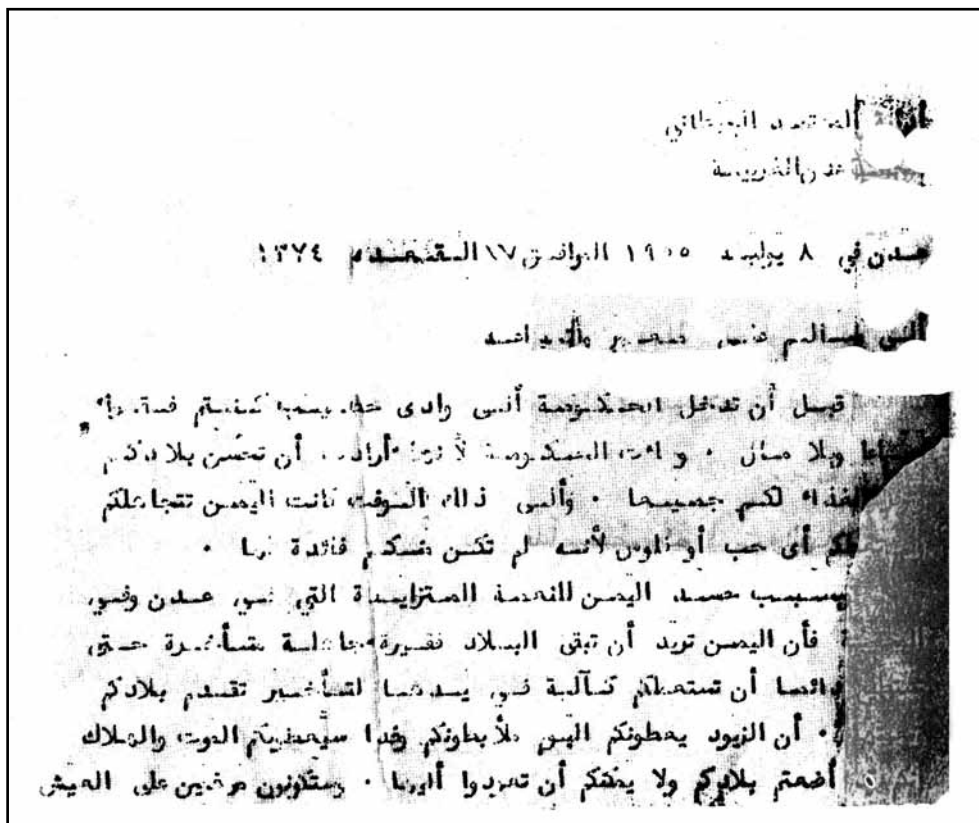 المعتمد البريطاني
عدن الغربية
عدن في ٨ يوليه ١٩٥٥ الموافق ١٧ القعدة ١٣٧٤
الى سالم علي
قبل أن تدخل الحكومة ألى وادى حطيب كنتم
وبلا مال ٠ و أتت الحكومة لأنها أرادت أن تحسن بلادكم
لكم جميعا ٠ وألى ذلك الوقت كانت اليمن تتجاهلكم
أى حب أو فلوس لأنه لم تكن منكم فائدة لها ٠
بسبب حسد اليمن للنعمة المتزايدة التي في عدن وفي
فأن اليمن تريد أن تبقى البلاد فقيرة جاهلة متأخرة حتى
دائما أن تستعملكم كآلة في يدها لتأخير تقدم بلادكم
أن الزيود يعطونكم اليوم ملأ بطونكم وغدا سيعطونكم الموت والهلاك
أضعتم بلادكم ولا يمكنكم أن تعودوا أليها ٠ وستكونون مرغمين على العيش